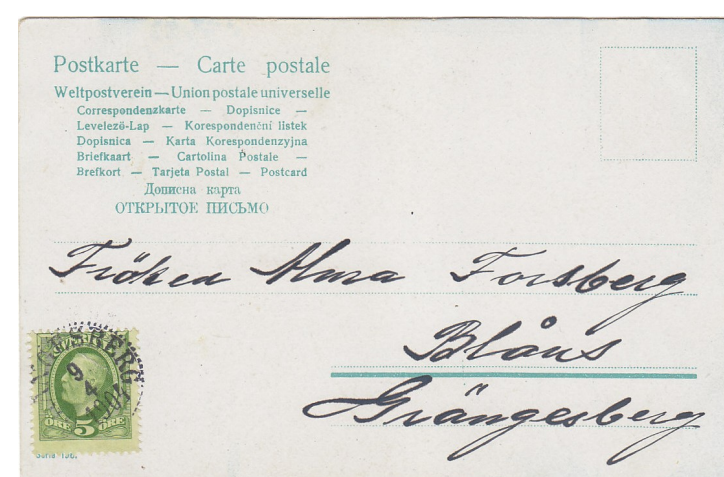 Postkarte — Carte postale
Weltpostverein — Union postale universelle
Correspondenzkarte — Dopisnice —
Levelező-Lap — Korespondenční listek
Dopisnica — Karta Korespondenzyjna
Briefkaart — Cartolina Postale —
Brefkort — Tarjeta Postal — Postcard
Дописна карта
ОТКРЫТОЕ ПИСЬМО
Fröken Alma Forsberg
Blåns
Grängesberg
9
4
ÖRE 5 ÖRE